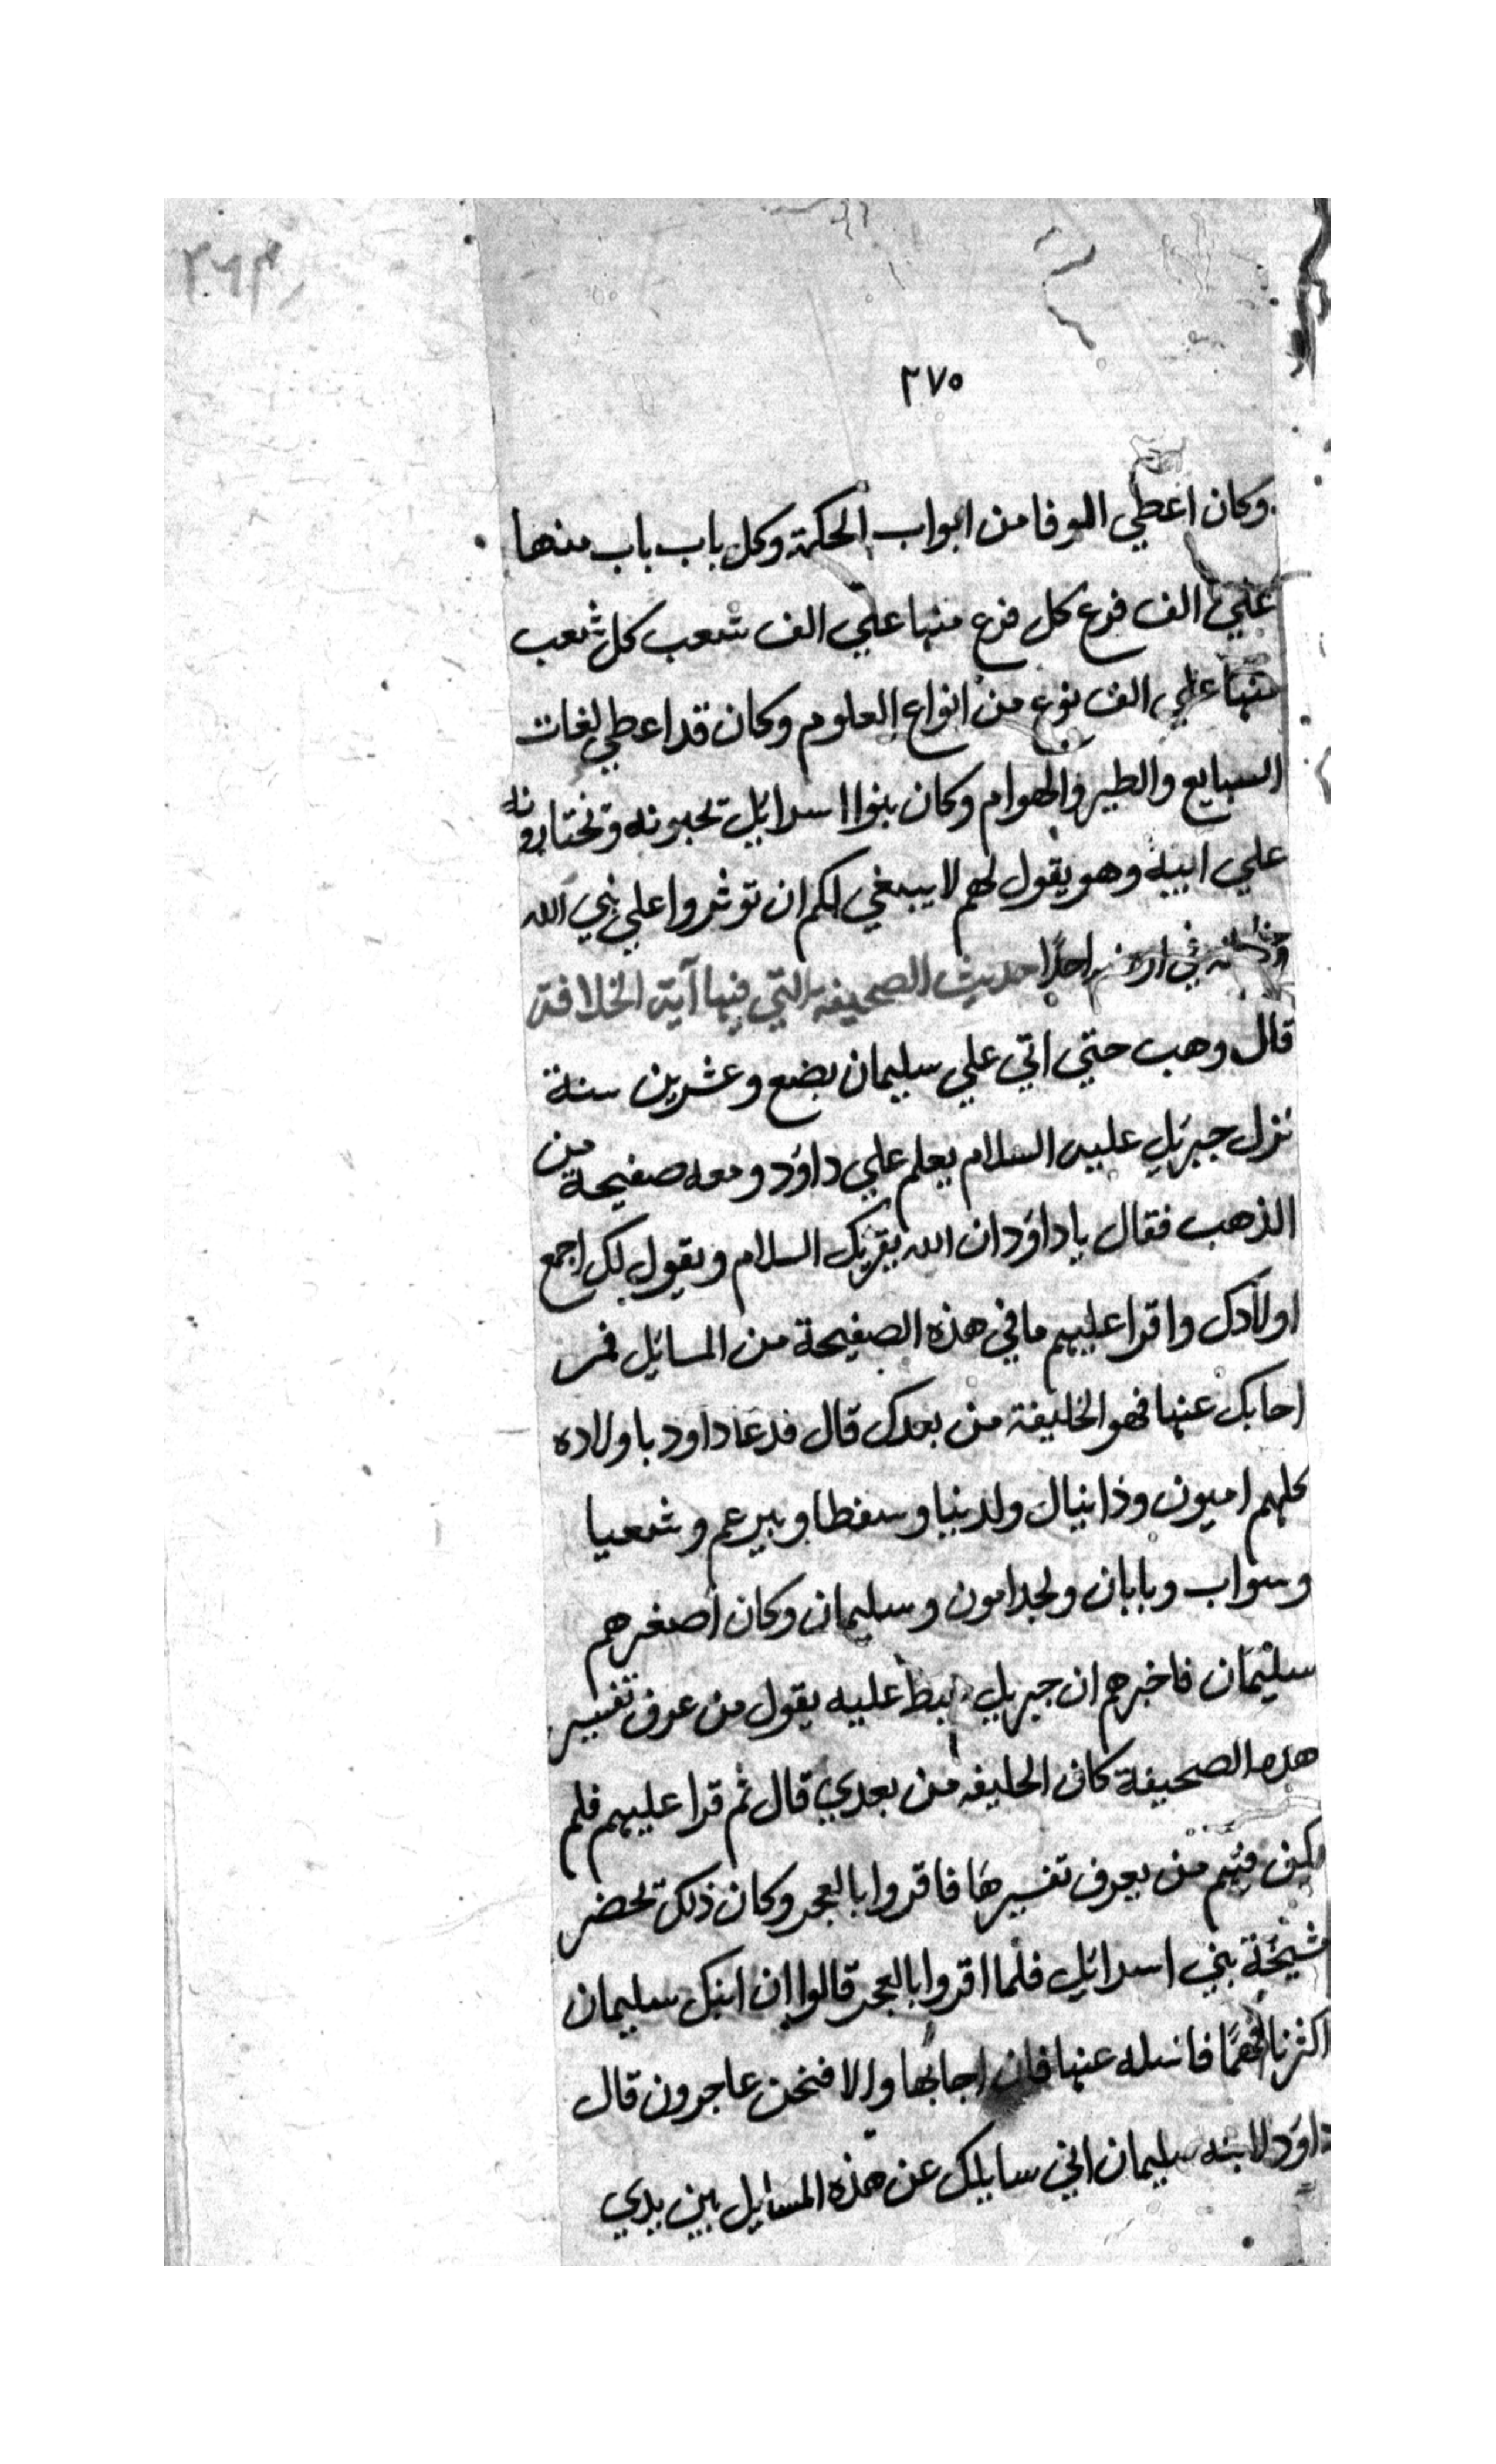 ٢٦٣
٢٧٥
وكان اعطي الوفا من ابواب الحكمة وكل باب باب منها
علي الف فرع كل فرع منها علي الف شعب كل شعب
منها علي الف نوع من انواع العلوم وكان قد اعطي لغات
السبايع والطير والهوام وكان بنوا اسرائيل تحبونه وتختارونه
علي ابيه وهو يقول لهم لا يبنغي لكم ان توثروا علي نبي الله
في احدًا حديث الصحيفة التي فيها آية الخلافة
قال وهب حتي اتي علي سليمان بضع وعشرين سنة
نزل جبرئيل عليه السلام يعلم علي داود ومعه صفيحة من
الذهب فقال ياداود ان الله يقريك السلام ويقول لك اجمع
اولادك واقرا عليهم مافي هذه الصفيحة من المسائل فمن
احابك عنها فهو الخليفة من بعدك قال فدعا داود باولاده
كلهم اميون وذانيال ولدينيا وسفطا وبيرعم وشعيا
وسواب وبابان ولجدامون وسليمان وكان اصغرهم
سليمان فاخبرهم ان جبريل هبط عليه يقول من عرف تفسير
هذه الصحيفة كان الحليفه من بعدي قال ثم قرا عليهم فلم
يكن فيهم من يعرف تفسيرها فاقروا بالعجر وكان ذلك تحضر
مشيخة بني اسرائيل فلما اقروا بالعجر قالوا ان ابنك سليمان
اكثرنا فهمًا فاسله عنها فان اجابها والا فنحن عاجرون قال
داود لابنه سليمان اني سايلك عن هذه المسايل بين يدي